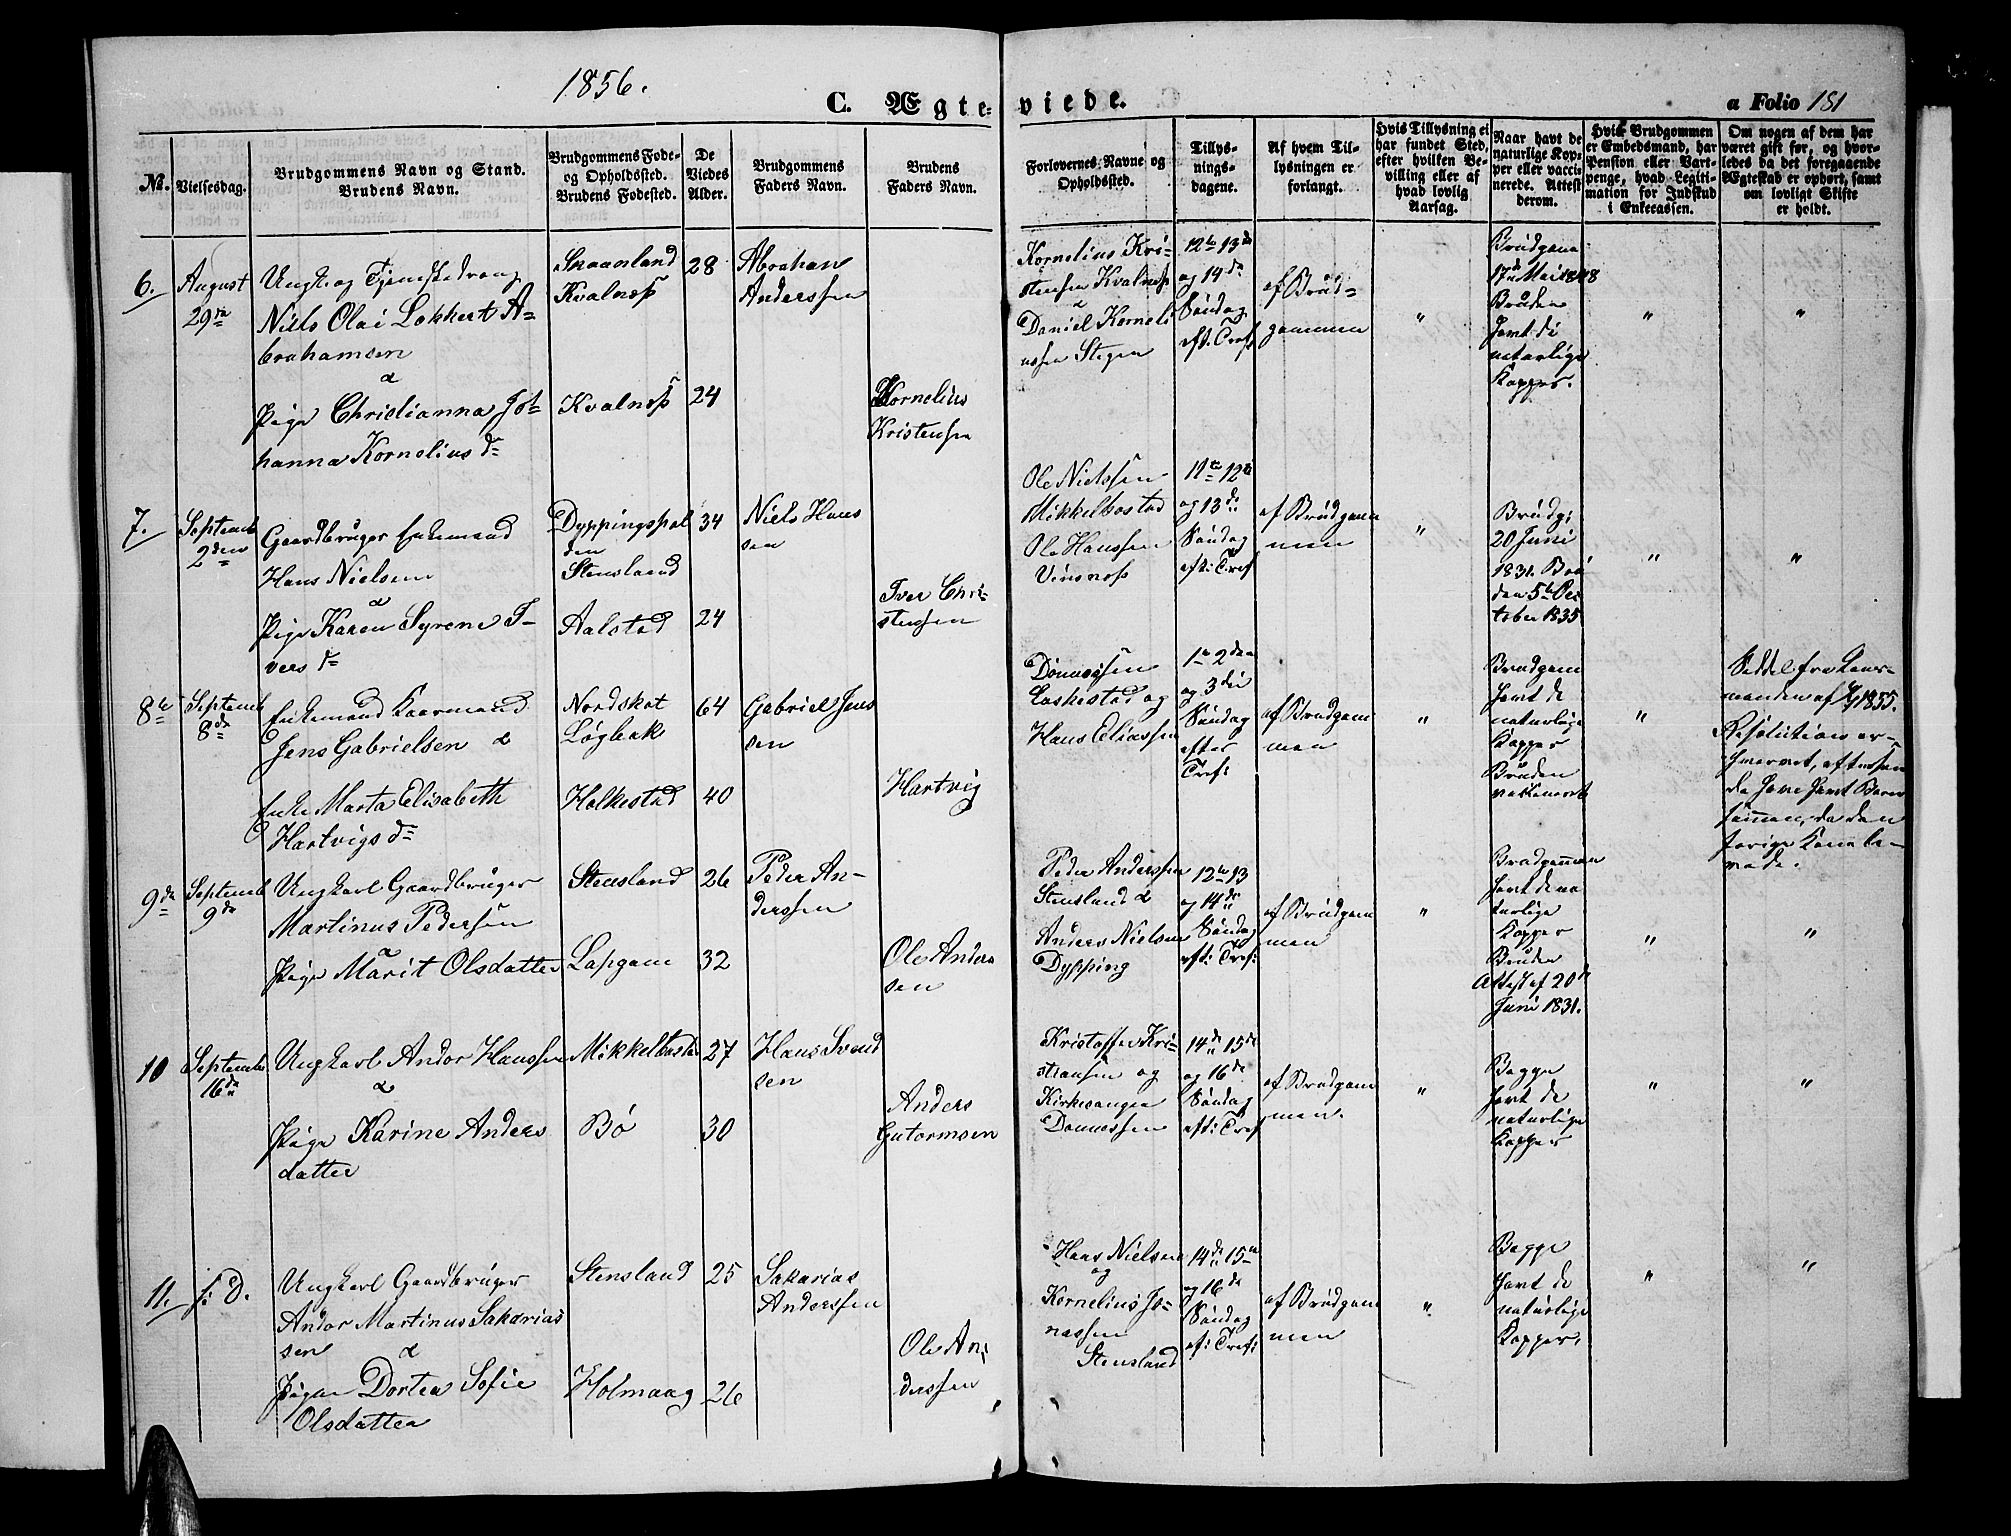 1856.
C. Ægte-
viede.
a Folio 181
No.
Vielsesdag.
Brudgommens Navn og Stand.
Brudens Navn.
Brudgommens Føde-
og Opholdssted.
Brudens Fødested.
De
Viedes
Alder.
Brudgommens
Faders Navn.
Brudens
Faders Navn.
Forlovernes Navne og
Opholdssted.
Tillys-
nings-
dagene.
Af hvem Til-
lysningen er
forlangt.
Hvis Tillysning ei
har fundet Sted,
efter hvilken Be-
villing eller af
hvad lovlig
Aarsag.
Naar havt de
naturlige Kop-
per eller vacci-
nerede. Attest
derom.
Hvis Brudgommen
er Embedsmand, har
Pension eller Vart-
penge, hvad Legiti-
mation for Indskud
i Enkecassen.
Om nogen af dem har
været gift før, og hvor-
ledes da det foregaaende
Ægteskab er ophørt, samt
om lovligt Skifte
er holdt.
6.
August
29de
Ungk. og Tjenestedreng
Niels Olai Lokkert A-
brahamsen
&
Pige Christianna Jo-
hanna Kornelius d
Kvalnes
Kvalnes
28
24
Abraham
Anderssen
Kornelius
Kristensen
Kornelius Kri-
stensen Kvalnes
&
Daniel Korneli
ussen Stegen
12te 13de
og 14de
Søndag
eft. Tref.
af Brud-
gommen
"
Brudgom
17de Mai 1848
Bruden
havt de
naturlige
Kopper.
"
"
7.
Septemb
2den
Gaardbruger Enkemand
Hans Nielsen
&
Pige Karen Syrene I-
vers d
Dyppingspol
den
Stensland
Aalstad
34
24
Niels Hans
sen
Iver Chri-
stensen
Ole Nielssen
Mikkelbostad
Ole Hanssen
Vinsnes
11te 12te
og 13de
Søndag
eft: Tref
af Brudgom
men
"
Brudg:
20 Juni
1831. Bru
den 5te Oc
tober 1835
"
"
8de
Septemb
8de
Enkemand Kaarmand
Jens Gabrielsen &
Enke Marta Elisabeth
Hartvigs d
Nordskot
Løgbak
Holkestad
64
40
Gabriel Jens
sen
Hartvig
Dønnessen
Laskestad og
Hans Eliassen
1te 2den
og 3die
Søndag
efter
Tref:
af Brudgom
men
"
Brudgom
havt de
naturlige
Kopper
Bruden
vakcineret
"
Seddel fra Lens-
manden af 1855.
Resolution er-
hvervet, eftersom
de have havt Barn
sammen, da den
forige Kone le-
vede.
9de
Septemb
9de
Ungkarl Gaardbruger
Martinus Pedersen
&
Pige Marit Olsdatter
Stensland
Løpgam
26
32
Peder An-
derssen
Ole Anders
sen
Peder Anderssen
Stensland &
Anders Nielsen
Dypping
12te 13
og 14de
Søndag
eft: Tref:
af Brudgom
men
"
Brudgommen
havt de na
turlige
Kopper
Bruden
Attest af 20de
Juni 1831.
"
"
10
Septemb
16de
Ungkarl Andor Hanssen
&
Pige Karine Anders
datter
Mikkelbostad
Bø
27
30
Hans Svend
sen
Anders
Gutormsen
Kristoffer Kri-
stiansen og
Kirkevangen
Dønnessen
14de 15de
og 16de
Søndag
eft: Tref
af Brudgom
men.
"
Begge
havt de
naturlige
Kopper
"
"
11.
s: D.
Ungkarl Gaardbruger
Andor Martinus Sakarias
sen &
Pigen Dortea Sofie
Olsdatter
Stensland
Holmaag
25
26
Sakarias
Anderssen
Ole An-
derssen
Hans Nielsen
og
Kornelius Jo-
nassen
Stensland
14de 15de
og 16de
Søndag
ef: Tref:
af Brudgom
men
"
Begge
havt de
naturlige
Kopper.
"
"